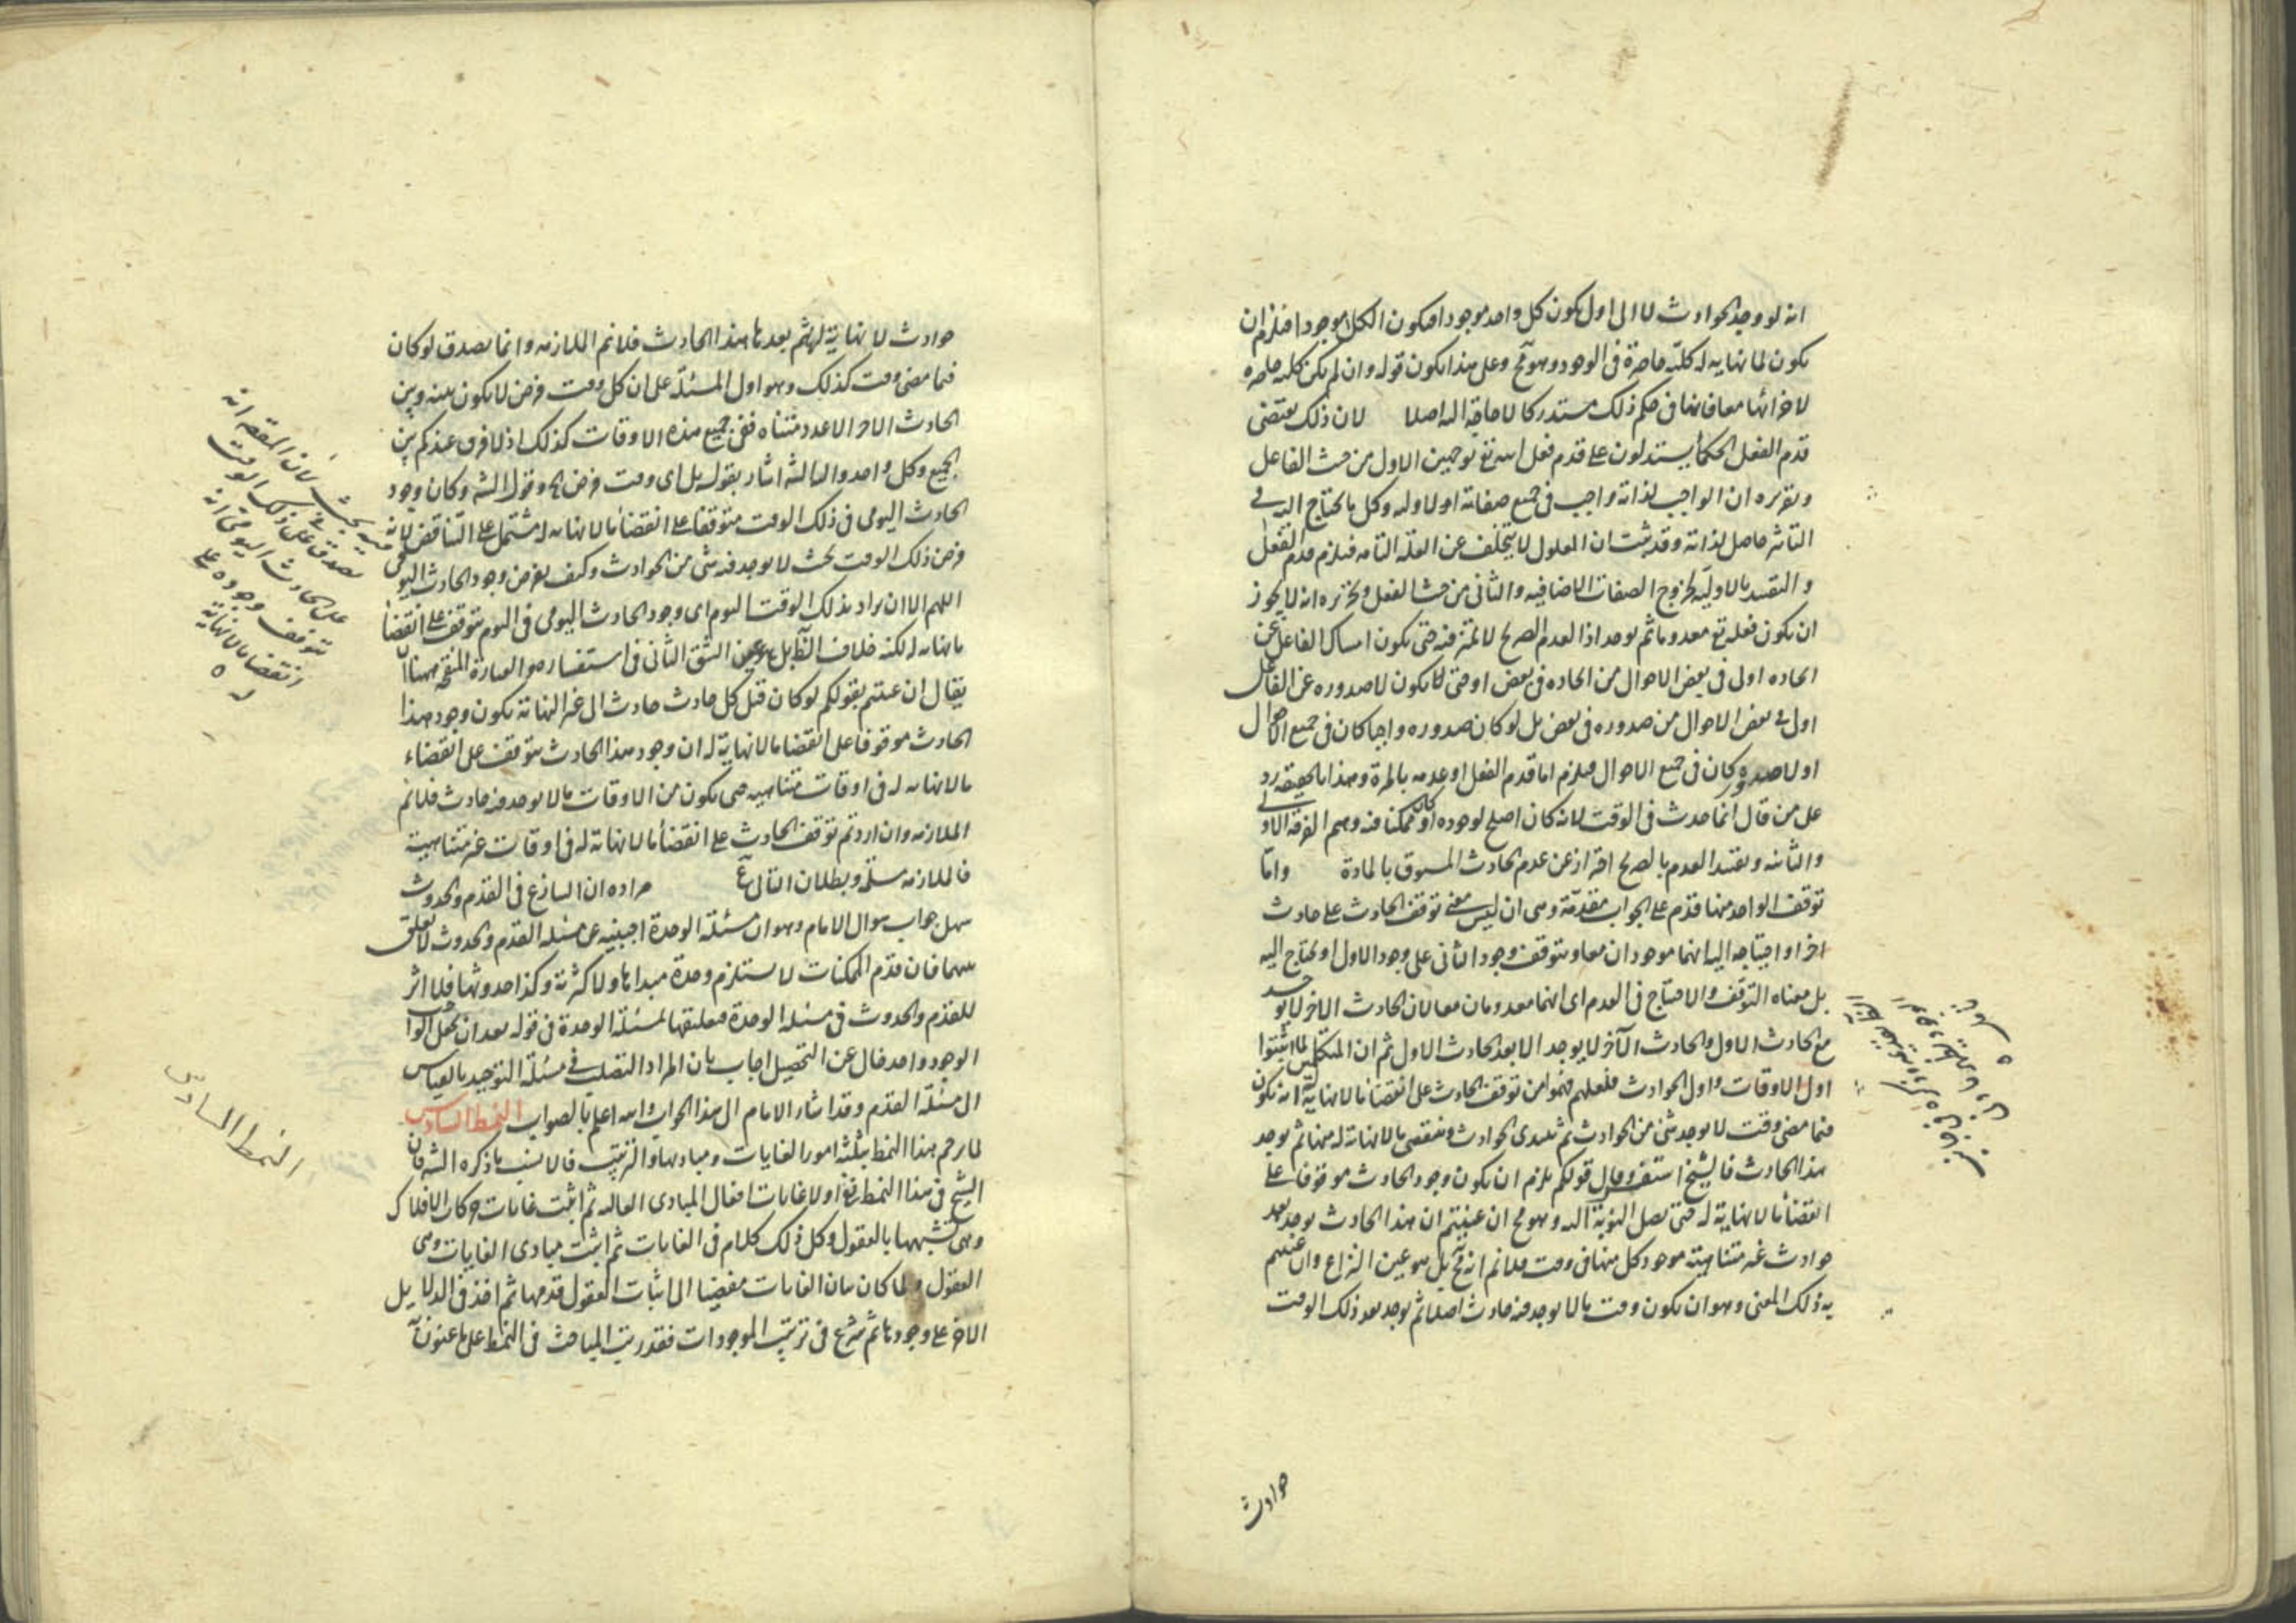 انه لو وجد الحوادث لا الى اول يكون كل واحد موجودا فيكون الكل موجودا فيلزم ان
يكون لما نهاية له كلية حاضرة فى الوجود وهو مح وعلى هذا يكون قوله وان لم يكن كلية حاصرة
لاجزائها معا فانها فى حكم ذلك مستدركا لا حاجة اليه اصلا لان ذلك يقتضى
قدم الفعل الحكماء يستدلون على قدم فعل الله تع بوجهين الاول من حيث الفاعل
وتقريره ان الواجب لذاته واجب فى جميع صفاته اولا وله وكل ما يحتاج اليه فى
التأثير حاصل لذاته وقد ثبت ان المعلول لا يتخلف عن العلة التامه فيلزم قدم الفعل
والتقييد بالاوليّة لخروج الصفات الاضافيه والثانى من حيث الفعل وتحريره انه لا يجوز
ان يكون فعله تع معدوما ثم يوجد اذا العدم الصريح لا تميز فيه حتى يكون امساك الفاعل عن
ايجاده اولى فى بعض الاحوال من ايجاده فى بعض او حتى لا يكون لا صدوره عن الفاعل
اولى فى بعض الاحوال من صدوره فى بعض بل لو كان صدوره واجبا كان فى جميع الاحوال
او لا صدوره كان فى جميع الاحوال فيلزم اما قدم الفعل او عدمه بالمرة وهذا بالحقيقه رد
على من قال انما حدث فى الوقت لانه كان اصلح لوجوده او كان ممكنا فيه وهم الفرقه الاولى
والثانيه وتقييد العدم بالصريح احتراز عن عدم الحادث المسبوق بالمادة واما
توقف الواحد منها قدّم على الجواب مقدّمة وهى ان ليس معنى توقف الحادث على حادث
اخر او احتياجه اليه انهما موجودان معا ويتوقف وجود الثانى على وجود الاول او يحتاج اليه
بل معناه التوقف والاحتياج فى العدم اى انهما معدومان معا لان الحادث الاخر لا يوجد
مع الحادث الاول والحادث الآخر لا يوجد الا بعد الحادث الاول ثم ان المتكلمين لما اثبتوا
اول الاوقات واول الحوادث فلعلهم فهموا من توقف الحادث على انقضاء ما لا نهاية له انه يكون
فيما مضى وقت لا يوجد شئ من الحوادث ثم يبتدى الحوادث وينقضى ما لا نهاية له منها ثم يوجد
هذا الحادث فالشيخ استفسر وقال قولكم يلزم ان يكون وجود الحادث موقوفا على
انقضاء ما لا نهاية له حتى تصل النوبة اليه وهو مح ان عنيتم ان هذا الحادث يوجد بعد
حوادث غير متناهية موجود كل منها فى وقت فلا نم انه مح بل هو عين النزاع وان عنيتم
به ذلك المعنى وهو ان يكون وقت ما لا يوجد فيه حادث اصلا ثم يوجد بعد ذلك الوقت
حوادث
حوادث لا نهاية لها ثم بعدها هذا الحادث فلا نم الملازمه وانما يصدق لو كان
فيما مضى وقت كذلك وهو اول المسئلة على ان كل وقت فرض لا يكون بينه وبين
الحادث الاخر الا عدد متناه ففى جميع هذه الاوقات كذلك اذ لا فرق عندكم بين
الجميع وكل واحد والى الثالث اشار بقوله بل اى وقت فرض الخ وقول الش وكان وجود
الحادث اليومى فى ذلك الوقت متوقفا على انقضاء ما لا نهاية له مشتمل على التناقض لانه
فرض ذلك الوقت بحيث لا يوجد فيه شئ من الحوادث وكيف يفرض وجود الحادث اليومى فيه
اللهم الا ان يراد بذلك الوقت اليوم اى وجود الحادث اليومى فى اليوم يتوقف على انقضاء
ما نهاية له لكنه خلاف الظ بل هو عين الشق الثانى فى استفساره والعبارة المنقحة ههنا ان
يقال ان عنيتم بقولكم لو كان قبل كل حادث حادث الى غير النهاية يكون وجود هذا
الحادث موقوفا على انقضاء ما لا نهاية له ان وجود هذا الحادث يتوقف على انقضاء
ما لا نهاية له فى اوقات متناهيه حتى يكون من الاوقات ما لا يوجد فيه حادث فلا نم
الملازمه وان اردتم توقف الحادث على انقضاء ما لا نهاية له فى اوقات غير متناهية
فالملازمه مسلمة وبطلان التالى مم مراده ان التنازع فى القدم والحدوث
سهل جواب سوال الامام وهو ان مسئلة الوحدة اجنبيه عن مسئلة القدم والحدوث لا تعلق
بينهما فان قدم الممكنات لا يستلزم وحدة مبداها ولا كثرته وكذا حدوثها فلا اثر
للقدم والحدوث فى مسئلة الوحدة فتعليقها لمسئلة الوحدة فى قوله بعد ان تجعل الواجب
الوجود واحد خال عن التحصيل اجاب بان المراد التصلب فى مسئلة التوحيد بالقياس
الى مسئلة القدم وقد اشار الامام الى هذا الجواب والله اعلم بالصواب النمط السادس
لما ترجم هذا النمط بثلثة امور الغايات ومباديها والترتيب فالانسب ما ذكره الش فان
الشيخ فى هذا النمط نفى اولا غايات افعال المبادى العاليه ثم اثبت غايات حركات الافلاك
وهى تشبهها بالعقول وكل ذلك كلام فى الغايات ثم اثبت مبادى الغايات وهى
العقول ولما كان بيان الغايات مفضيا الى اثبات العقول قدمها ثم اخذ فى الدلايل
الاخر على وجودها ثم شرع فى ترتيب الموجودات فقد رتب المباحث فى النمط على ما عنون به
فيه بحث لان المقصر انه
يصدق على ذلك الوقت
على الحادث اليومى انه
يتوقف وجوده على
انقضاء ما لا نهاية
له
النمط السادس